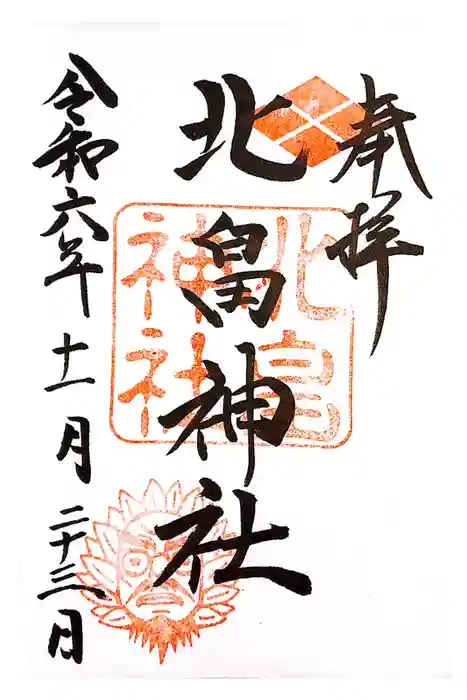 奉拝
北畠神社
北畠神社
令和六年十一月二十三日